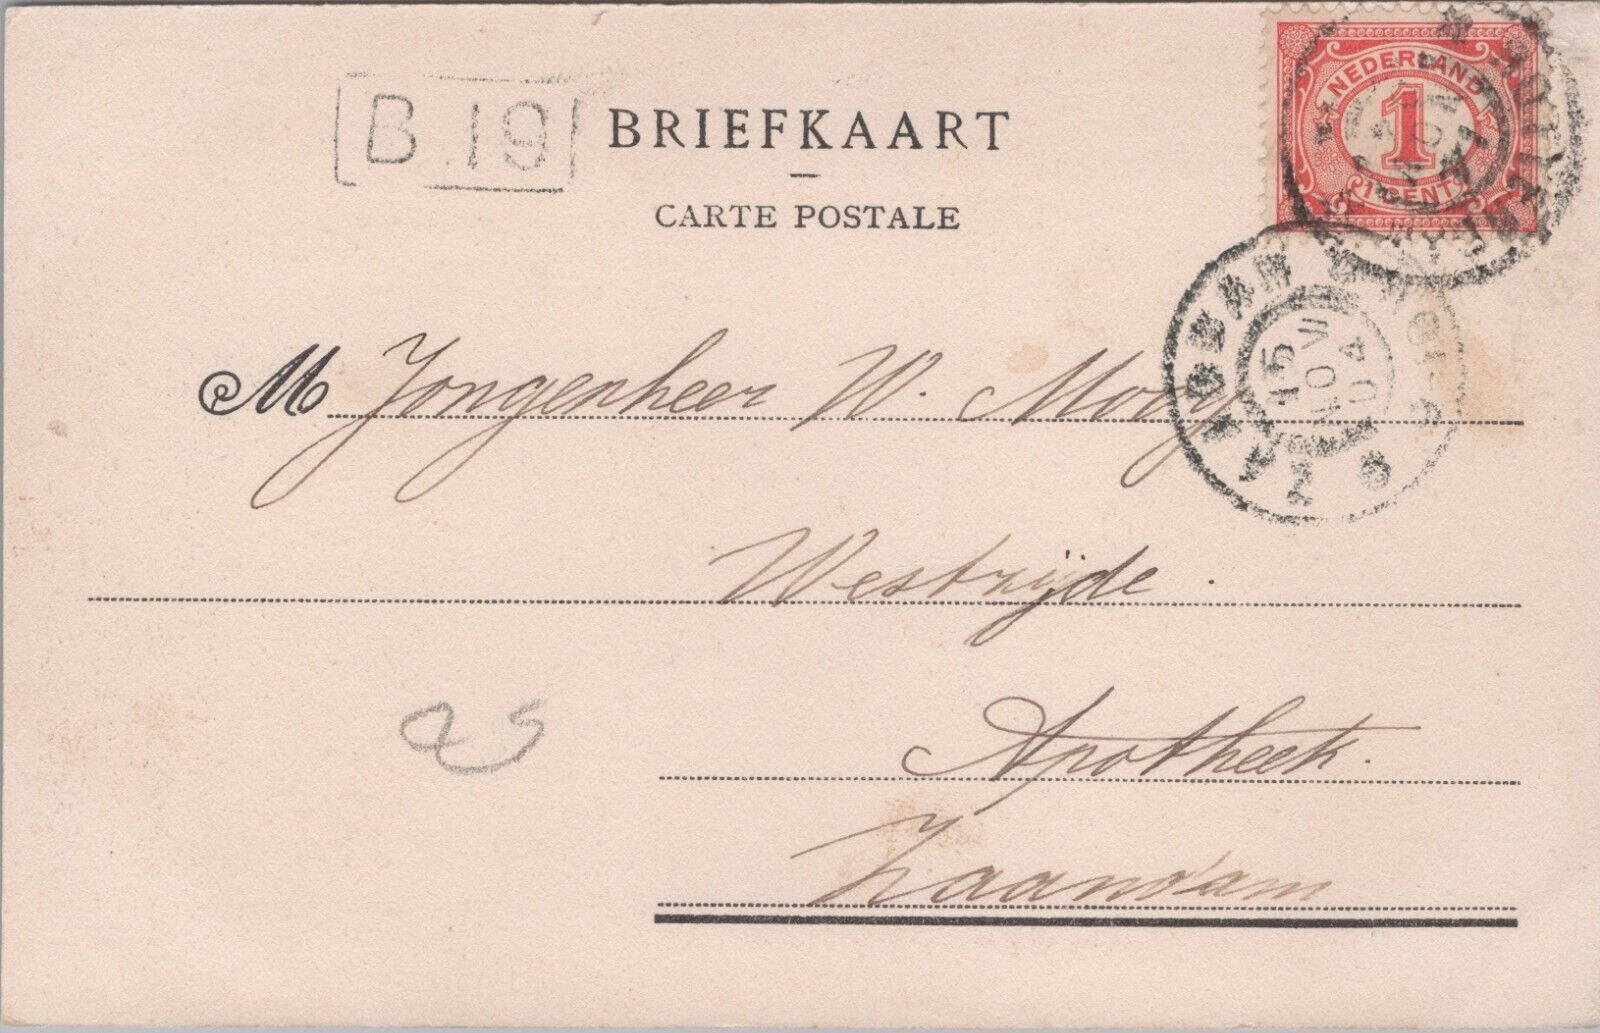 B.19
BRIEFKAART
CARTE POSTALE
NEDERLAND
1
1 CENT
M Jongenheer W. Mooy
Westzijde.
Apotheek.
Zaandam
ZAANDAM
15 NOV 04
25